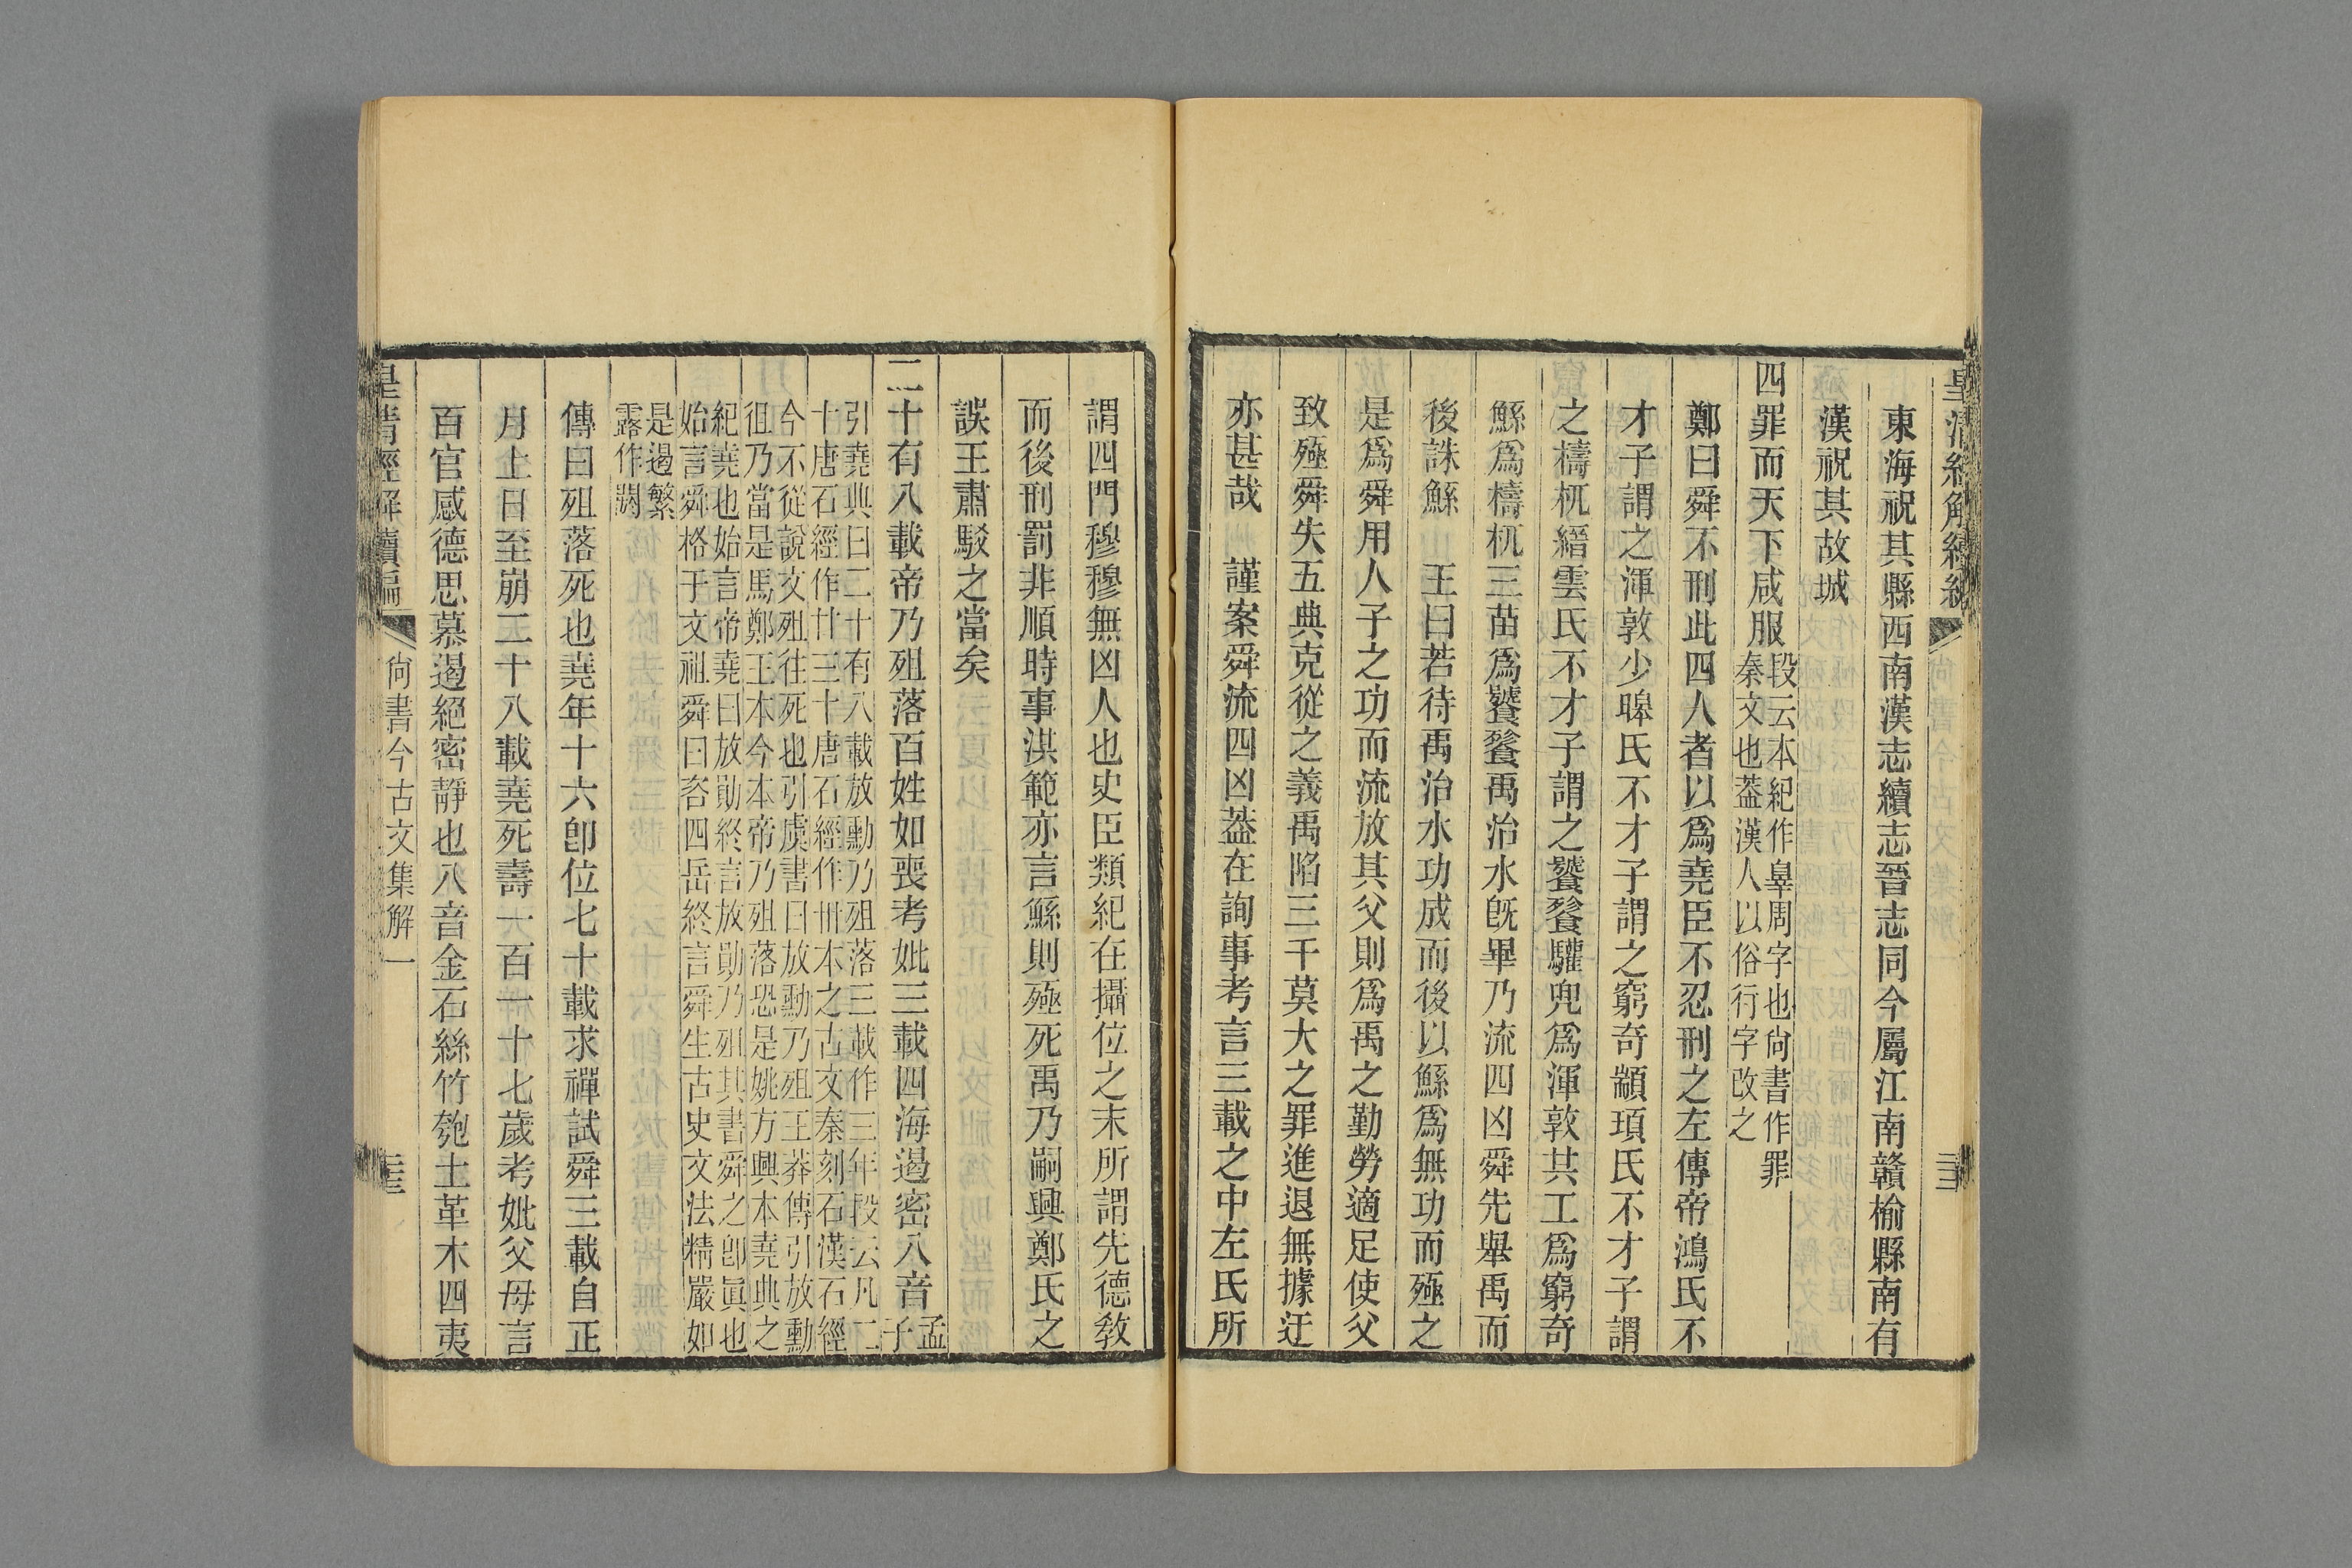 東海祝其縣西南漢志續志晉志同今屬江南贛榆縣南有
漢祝其故城
四罪而天下咸服
段云本紀作辠周字也尙書作罪
秦文也葢漢人以俗行字改之
鄭曰舜不刑此四人者以爲堯臣不忍刑之左傳帝鴻氏不
才子謂之渾敦少皞氏不才子謂之窮奇顓頊氏不才子謂
之檮杌縉雲氏不才子謂之饕餮驩兜爲渾敦共工爲窮奇
鯀爲檮杌三苗爲饕餮禹治水旣畢乃流四凶舜先舉禹而
後誅鯀　王曰若待禹治水功成而後以鯀爲無功而殛之
是爲舜用人子之功而流放其父則爲禹之勤勞適足使父
致殛舜失五典克從之義禹陷三千莫大之罪進退無據迂
亦甚哉　謹案舜流四凶葢在詢事考言三載之中左氏所
謂四門穆穆無凶人也史臣類紀在攝位之末所謂先德敎
而後刑罰非順時事洪範亦言鯀則殛死禹乃嗣興鄭氏之
誤王肅駁之當矣
二十有八載帝乃殂落百姓如喪考妣三載四海遏密八音
孟
子
引堯典曰二十有八載放勳乃殂落三載作三年段云凡二
十唐石經作廿三十唐石經作卅本之古文秦刻石漢石經
今不從說文殂往死也引虞書曰放勳乃殂王莽傳引放勳
徂乃當是馬鄭王本今本帝乃殂落恐是姚方興本堯典之
紀堯也始言帝堯曰放勛終言放勛乃殂其書舜之卽眞也
始言舜格于文祖舜曰咨四岳終言舜生古史文法精嚴如
是遏繁
露作閼
傳曰殂落死也堯年十六卽位七十載求禪試舜三載自正
月上日至崩二十八載堯死壽一百一十七歲考妣父母言
百官感德思慕遏絕密靜也八音金石絲竹匏土革木四夷
皇清經解續編
尙書今古文集解一